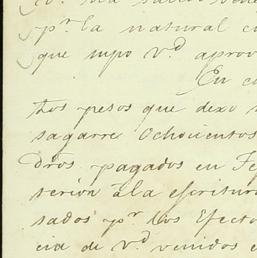 pr. la natural
que supo vd. aprov
En
tos pesos que dexo
sagarre Ochocientos
dros. pagados en
terior á la escritura
sados pr. los Efecto
cia de vd. venidos